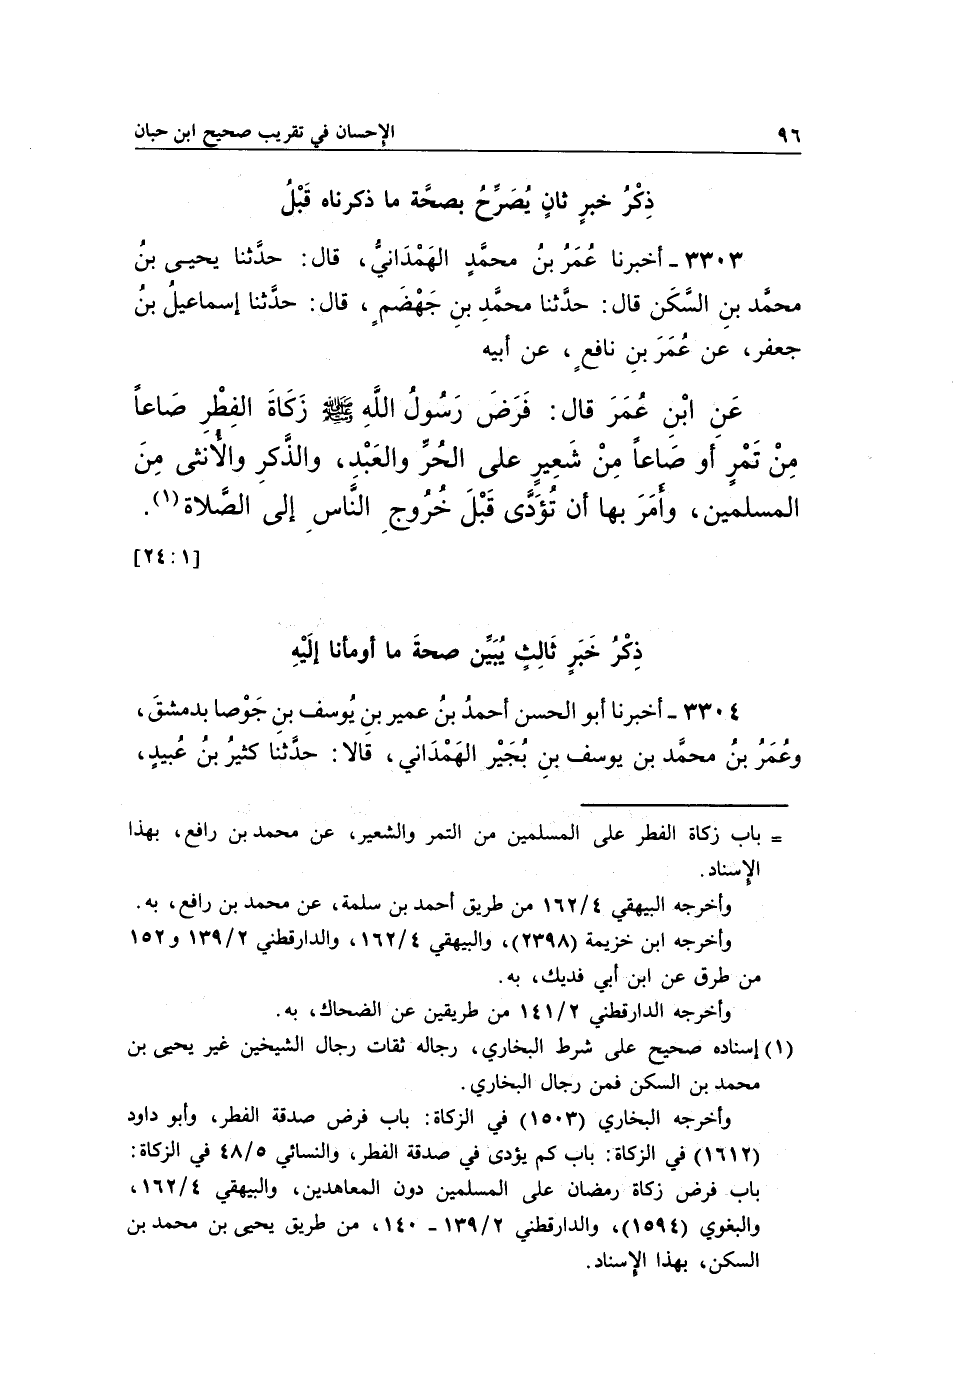 ٩٦ الإحسان في تقريب صحيح ابن حبان
ذِكْرُ خبرٍ ثانٍ يُصَرِّحُ بصحَّة ما ذكرناه قَبْلُ
٣٣٠٣ ـ أخبرنا عُمَرُ بنُ محمَّدٍ الهَمْدَانيُّ، قال: حدَّثنا يحيى بنُ
محمَّد بنِ السَّكَن قال: حدَّثنا محمَّد بن جَهْضَمٍ، قال: حدَّثنا إسماعيلُ بنُ
جعفر، عن عُمَرَ بن نافعٍ، عن أبيه
عَنِ ابْنِ عُمَرَ قال: فَرَضَ رَسُولُ اللَّهِ ﷺ زَكَاةَ الفِطْرِ صَاعاً
مِنْ تَمْرٍ أو صَاعاً مِنْ شَعِيرٍ على الحُرِّ والعَبْدِ، والذَّكرِ والأُنثى مِنَ
المسلمين، وأَمَرَ بها أن تُؤَدَّى قَبْلَ خُرُوجِ النَّاسِ إلى الصَّلاة(١).
[٢٤:١]
ذِكْرُ خَبَرٍ ثَالِثٍ يُبَيِّن صحةَ ما أومأنا إلَيْهِ
٣٣٠٤ ـ أخبرنا أبو الحسن أحمدُ بنُ عمير بن يُوسف بنِ جَوْصا بدمشقَ،
وعُمَرُ بنُ محمَّد بن يوسف بنِ بُجَيْر الهَمْدَاني، قالا: حدَّثنا كثيرُ بنُ عُبيدٍ،
= باب زكاة الفطر على المسلمين من التمر والشعير، عن محمد بن رافع، بهذا
الإسناد.
وأخرجه البيهقي ١٦٢/٤ من طريق أحمد بن سلمة، عن محمد بن رافع، به.
وأخرجه ابن خزيمة (٢٣٩٨)، والبيهقي ١٦٢/٤، والدارقطني ١٣٩/٢ و١٥٢
من طرق عن ابن أبي فديك، به.
وأخرجه الدارقطني ١٤١/٢ من طريقين عن الضحاك، به.
(١) إسناده صحيح على شرط البخاري، رجاله ثقات رجال الشيخين غير يحيى بن
محمد بن السكن فمن رجال البخاري.
وأخرجه البخاري (١٥٠٣) في الزكاة: باب فرض صدقة الفطر، وأبو داود
(١٦١٢) في الزكاة: باب كم يؤدى في صدقة الفطر، والنسائي ٤٨/٥ في الزكاة:
باب فرض زكاة رمضان على المسلمين دون المعاهدين، والبيهقي ١٦٢/٤،
والبغوي (١٥٩٤)، والدارقطني ١٣٩/٢ ـ ١٤٠، من طريق يحيى بن محمد بن
السكن، بهذا الإسناد.